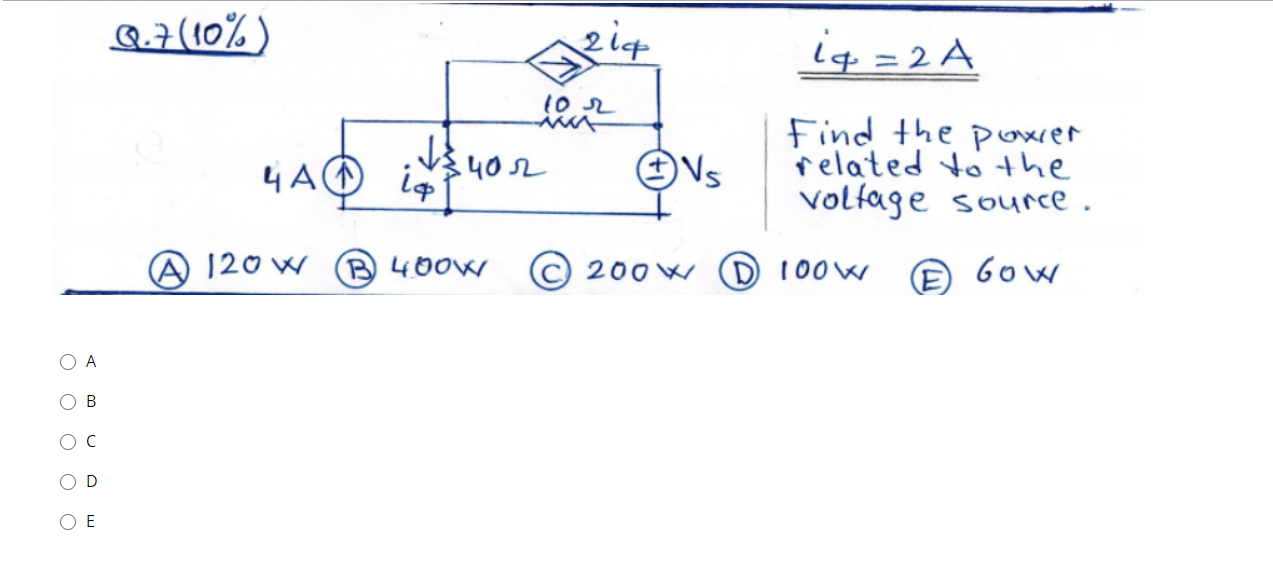 Q.7(10%)
2iφ
iφ = 2 A
10 Ω
Find the power
related to the
voltage source.
4 A
iφ
40 Ω
± Vs
Ⓐ 120 W Ⓑ 400W Ⓒ 200W Ⓓ 100W Ⓔ 60W
A
B
C
D
E